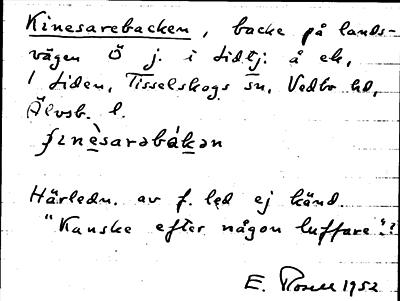 Kinesarebacken, backe på lands-
vägen Ö j. i tidtj. å ek,
1 tiden, Tisselskogs sn, Vedbo hd,
Älvsb. l.
ʃinèsarəbákən
Härledn. av f. led ej känd.
"Kanske efter någon luffare"?
E. Rosell 1952